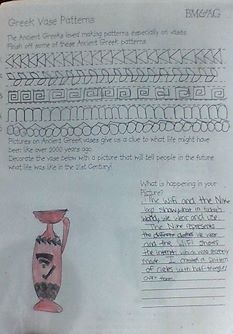 Greek Vase Patterns
BM&AG
The Ancient Greeks loved making patterns, especially on vases.
Finish off some of these Ancient Greek patterns.
Pictures on Ancient Greek vases give us a clue to what life might have
been like over 2000 years ago.
Decorate the vase below with a picture that will tell people in the future
what life was like in the 21st Century!
What is happening in your
Picture?
The Wifi and the Nike
show what in today's
we wear and use.
The Nike represents
the different clothes we wear
and the WiFi shows
the internet which was recently
made. I created a pattern
of circles with half-triangles
over them.